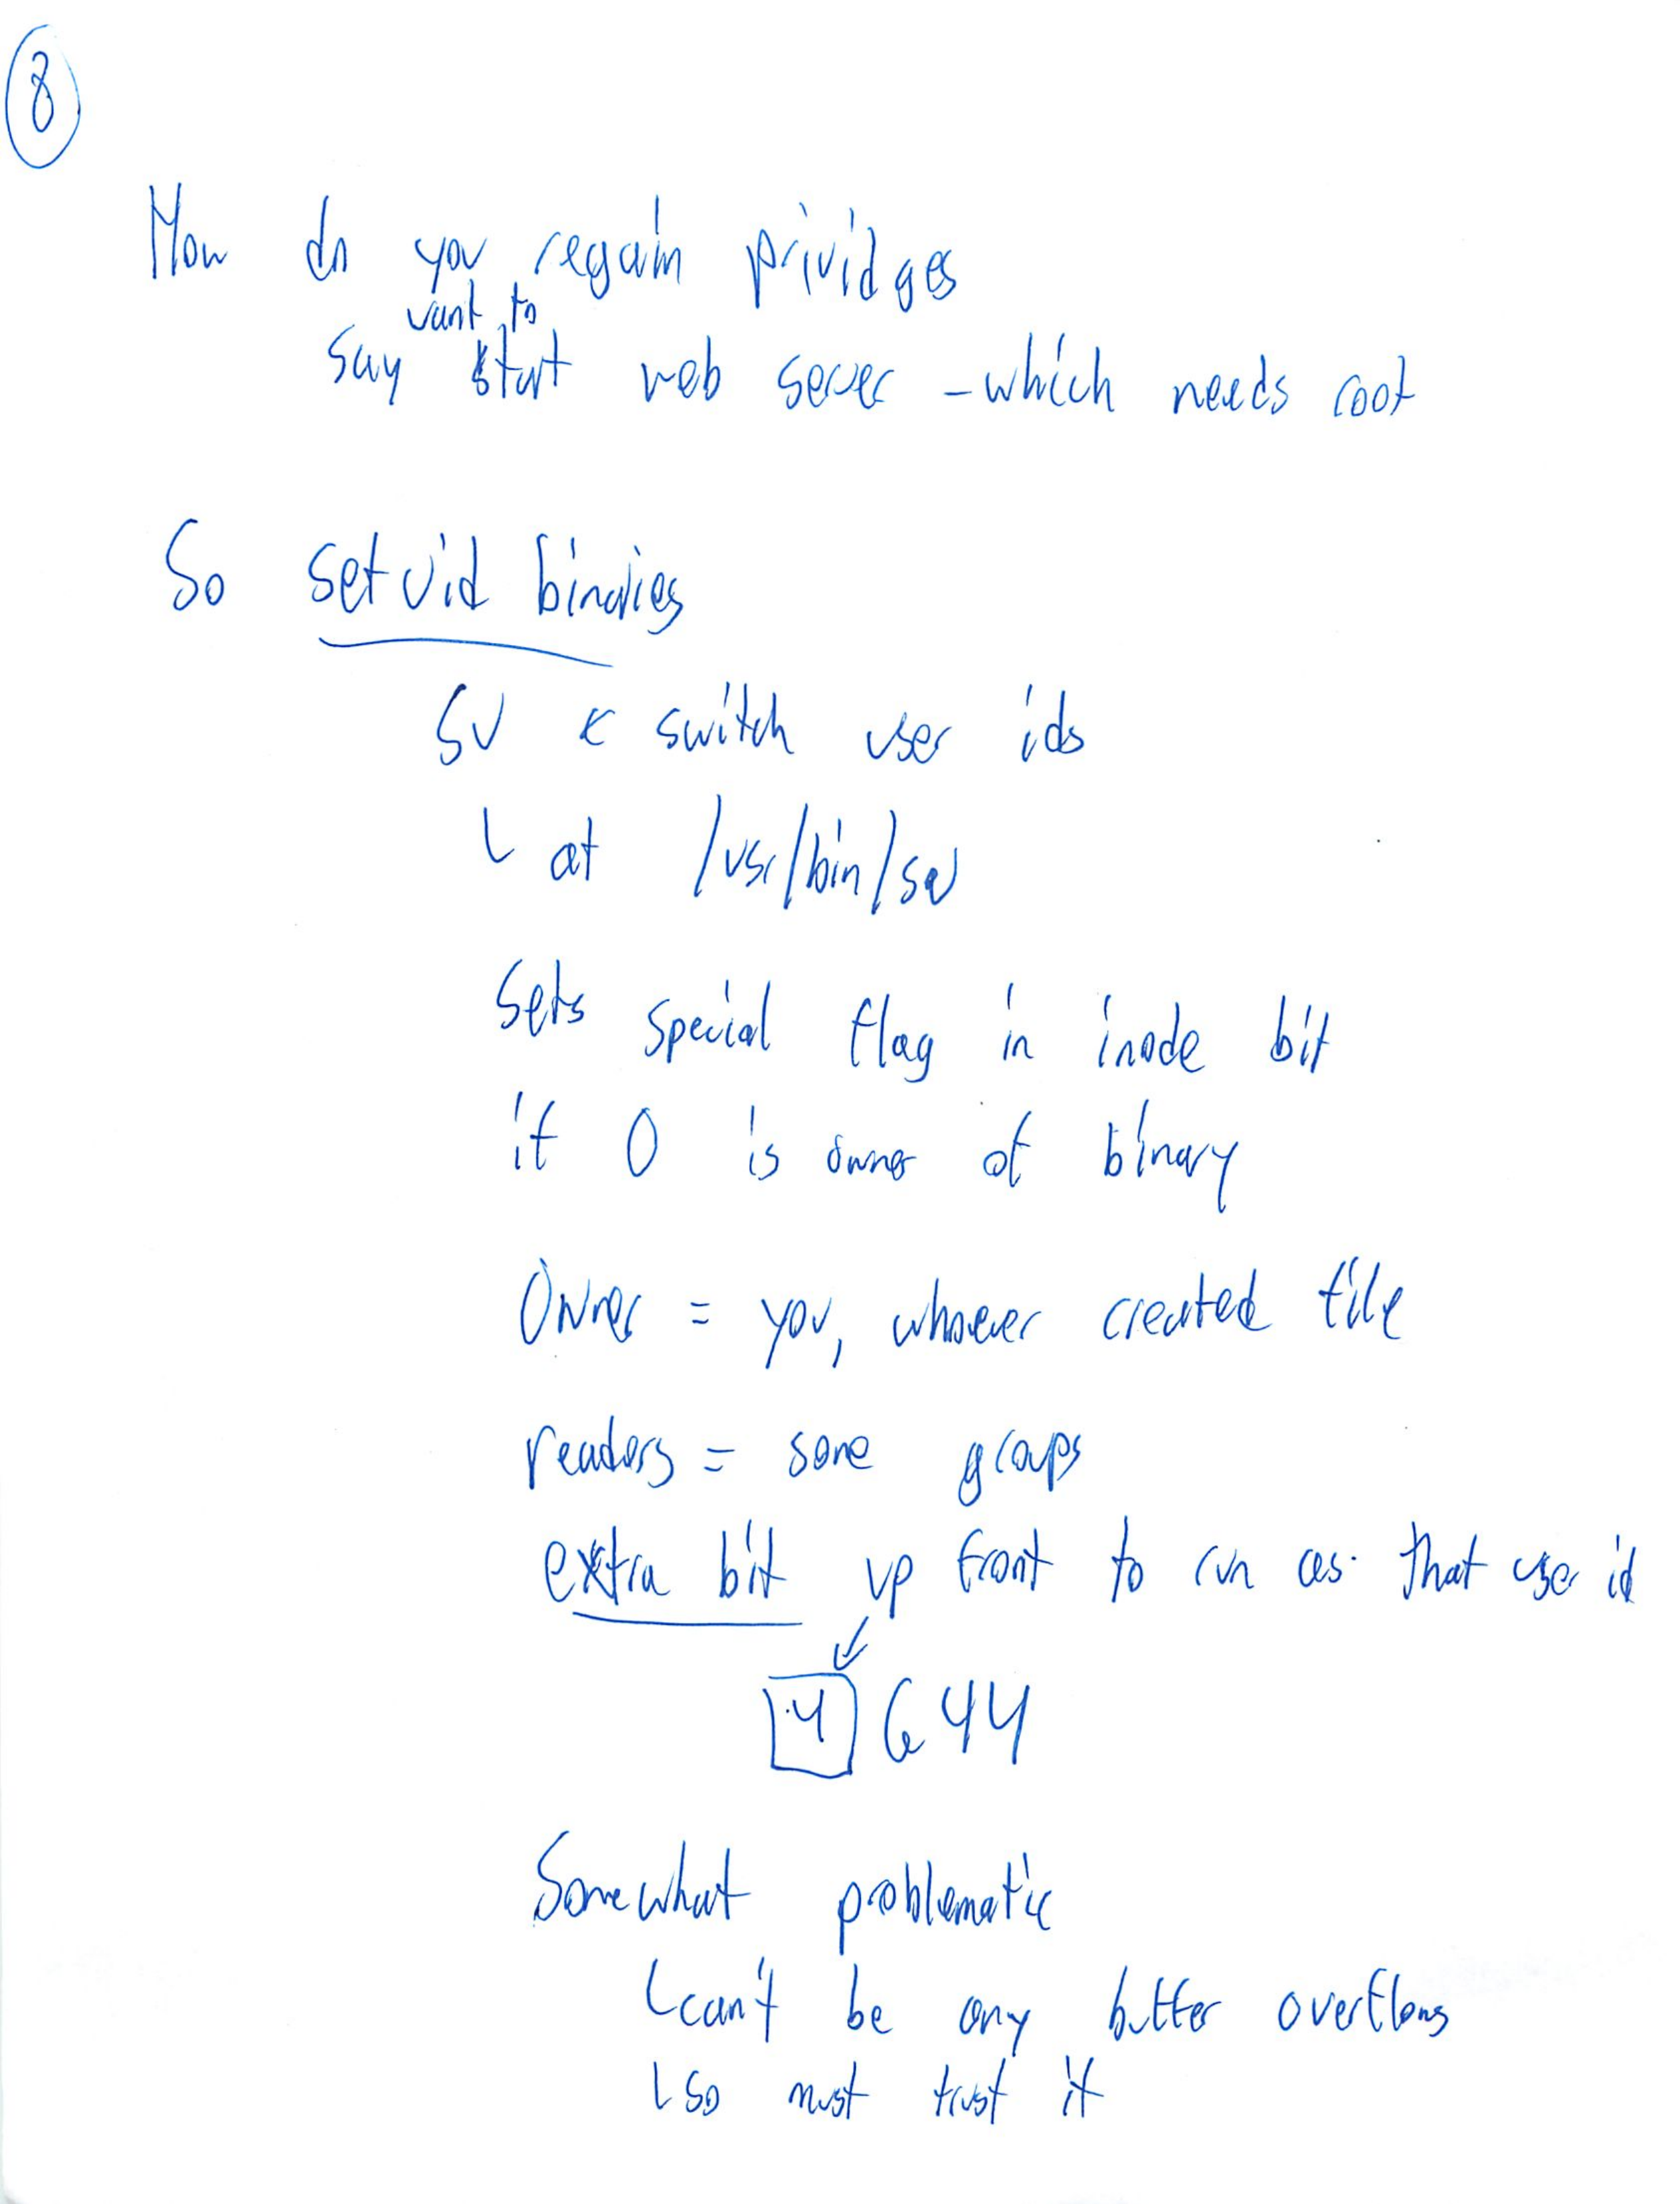 8
How do you regain prividges
want to
say start web server - which needs root
So setuid binaries
SU < switch user ids
at /usr/bin/su
Sets special flag in inode bit
if 0 is owner of binary
Owner = you, whoever created file
readers = some groups
extra bit up front to run as that user id
4 644
Somewhat problematic
can't be any buffer overflows
so must trust it